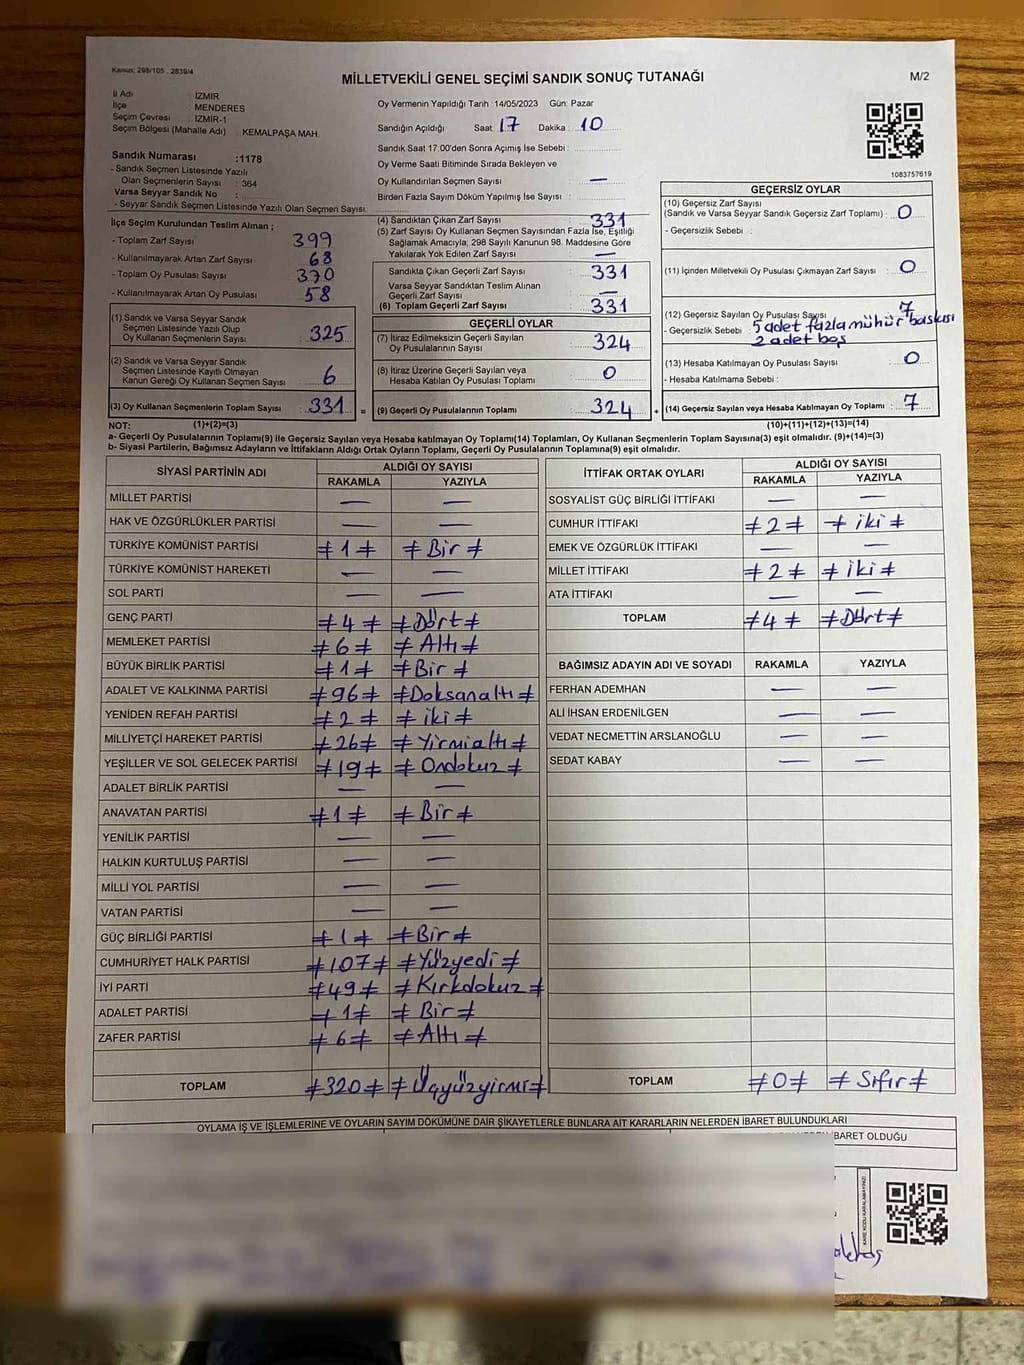 Kanun: 298/105 , 2839/4
MİLLETVEKİLİ GENEL SEÇİMİ SANDIK SONUÇ TUTANAĞI
M/2
İl Adı : İZMİR
İlçe MENDERES
Seçim Çevresi : İZMİR-1
Seçim Bölgesi (Mahalle Adı) : KEMALPAŞA MAH.
Sandık Numarası :1178
- Sandık Seçmen Listesinde Yazılı
Olan Seçmenlerin Sayısı : 364
Varsa Seyyar Sandık No :
- Seyyar Sandık Seçmen Listesinde Yazılı Olan Seçmen Sayısı:
Oy Vermenin Yapıldığı Tarih :14/05/2023 Gün: Pazar
Sandığın Açıldığı Saat: 17 Dakika: 10
Sandık Saat 17:00'den Sonra Açımış İse Sebebi :
Oy Verme Saati Bitiminde Sırada Bekleyen ve
Oy Kullandırılan Seçmen Sayısı : —
Birden Fazla Sayım Döküm Yapılmış İse Sayısı :
1083757619
İlçe Seçim Kurulundan Teslim Alınan ;
- Toplam Zarf Sayısı : 399
- Kullanılmayarak Artan Zarf Sayısı : 68
- Toplam Oy Pusulası Sayısı : 370
- Kullanılmayarak Artan Oy Pusulası : 58
(1) Sandık ve Varsa Seyyar Sandık
Seçmen Listesinde Yazılı Olup
Oy Kullanan Seçmenlerin Sayısı : 325
(2) Sandık ve Varsa Seyyar Sandık
Seçmen Listesinde Kayıtlı Olmayan
Kanun Gereği Oy Kullanan Seçmen Sayısı : 6
(3) Oy Kullanan Seçmenlerin Toplam Sayısı : 331
(4) Sandıktan Çıkan Zarf Sayısı : 331
(5) Zarf Sayısı Oy Kullanan Seçmen Sayısından Fazla İse, Eşitliği
Sağlamak Amacıyla; 298 Sayılı Kanunun 98. Maddesine Göre
Yakılarak Yok Edilen Zarf Sayısı : —
Sandıkta Çıkan Geçerli Zarf Sayısı : 331
Varsa Seyyar Sandıktan Teslim Alınan
Geçerli Zarf Sayısı : —
(6) Toplam Geçerli Zarf Sayısı : 331
GEÇERLİ OYLAR
(7) İtiraz Edilmeksizin Geçerli Sayılan
Oy Pusulalarının Sayısı : 324
(8) İtiraz Üzerine Geçerli Sayılan veya
Hesaba Katılan Oy Pusulası Toplamı : 0
= (9) Geçerli Oy Pusulalarının Toplamı : 324 +
GEÇERSİZ OYLAR
(10) Geçersiz Zarf Sayısı
(Sandık ve Varsa Seyyar Sandık Geçersiz Zarf Toplamı) : 0
- Geçersizlik Sebebi :
(11) İçinden Milletvekili Oy Pusulası Çıkmayan Zarf Sayısı : 0
(12) Geçersiz Sayılan Oy Pusulası Sayısı : 7
- Geçersizlik Sebebi : 5 adet fazla mühür baskısı
2 adet boş
(13) Hesaba Katılmayan Oy Pusulası Sayısı : 0
- Hesaba Katılmama Sebebi :
(14) Geçersiz Sayılan veya Hesaba Katılmayan Oy Toplamı : 7
NOT: (1)+(2)=(3)
(10)+(11)+(12)+(13)=(14)
a- Geçerli Oy Pusulalarının Toplamı(9) ile Geçersiz Sayılan veya Hesaba Katılmayan Oy Toplamı(14) Toplamları, Oy Kullanan Seçmenlerin Toplam Sayısına(3) eşit olmalıdır. (9)+(14)=(3)
b- Siyasi Partilerin, Bağımsız Adayların ve İttifakların Aldığı Ortak Oyların Toplamı, Geçerli Oy Pusulalarının Toplamına(9) eşit olmalıdır.
SİYASİ PARTİNİN ADI ALDIĞI OY SAYISI
RAKAMLA YAZIYLA
MİLLET PARTİSİ — —
HAK VE ÖZGÜRLÜKLER PARTİSİ — —
TÜRKİYE KOMÜNİST PARTİSİ ≠1≠ ≠Bir≠
TÜRKİYE KOMÜNİST HAREKETİ — —
SOL PARTİ — —
GENÇ PARTİ ≠4≠ ≠Dört≠
MEMLEKET PARTİSİ ≠6≠ ≠Altı≠
BÜYÜK BİRLİK PARTİSİ ≠1≠ ≠Bir≠
ADALET VE KALKINMA PARTİSİ ≠96≠ ≠Doksanaltı≠
YENİDEN REFAH PARTİSİ ≠2≠ ≠iki≠
MİLLİYETÇİ HAREKET PARTİSİ ≠26≠ ≠Yirmialtı≠
YEŞİLLER VE SOL GELECEK PARTİSİ ≠19≠ ≠Ondokuz≠
ADALET BİRLİK PARTİSİ — —
ANAVATAN PARTİSİ ≠1≠ ≠Bir≠
YENİLİK PARTİSİ — —
HALKIN KURTULUŞ PARTİSİ — —
MİLLİ YOL PARTİSİ — —
VATAN PARTİSİ — —
GÜÇ BİRLİĞİ PARTİSİ ≠1≠ ≠Bir≠
CUMHURİYET HALK PARTİSİ ≠107≠ ≠Yüzyedi≠
İYİ PARTİ ≠49≠ ≠Kırkdokuz≠
ADALET PARTİSİ ≠1≠ ≠Bir≠
ZAFER PARTİSİ ≠6≠ ≠Altı≠
TOPLAM ≠320≠ ≠Üçyüzyirmi≠
İTTİFAK ORTAK OYLARI ALDIĞI OY SAYISI
RAKAMLA YAZIYLA
SOSYALİST GÜÇ BİRLİĞİ İTTİFAKI — —
CUMHUR İTTİFAKI ≠2≠ ≠iki≠
EMEK VE ÖZGÜRLÜK İTTİFAKI — —
MİLLET İTTİFAKI ≠2≠ ≠iki≠
ATA İTTİFAKI — —
TOPLAM ≠4≠ ≠Dört≠
BAĞIMSIZ ADAYIN ADI VE SOYADI RAKAMLA YAZIYLA
FERHAN ADEMHAN — —
ALİ İHSAN ERDENİLGEN — —
VEDAT NECMETTİN ARSLANOĞLU — —
SEDAT KABAY — —
TOPLAM ≠0≠ ≠Sıfır≠
OYLAMA İŞ VE İŞLEMLERİNE VE OYLARIN SAYIM DÖKÜMÜNE DAİR ŞİKAYETLERLE BUNLARA AİT KARARLARIN NELERDEN İBARET BULUNDUKLARI
BARET OLDUĞU
KARE KODU KARALAMAYINIZ!